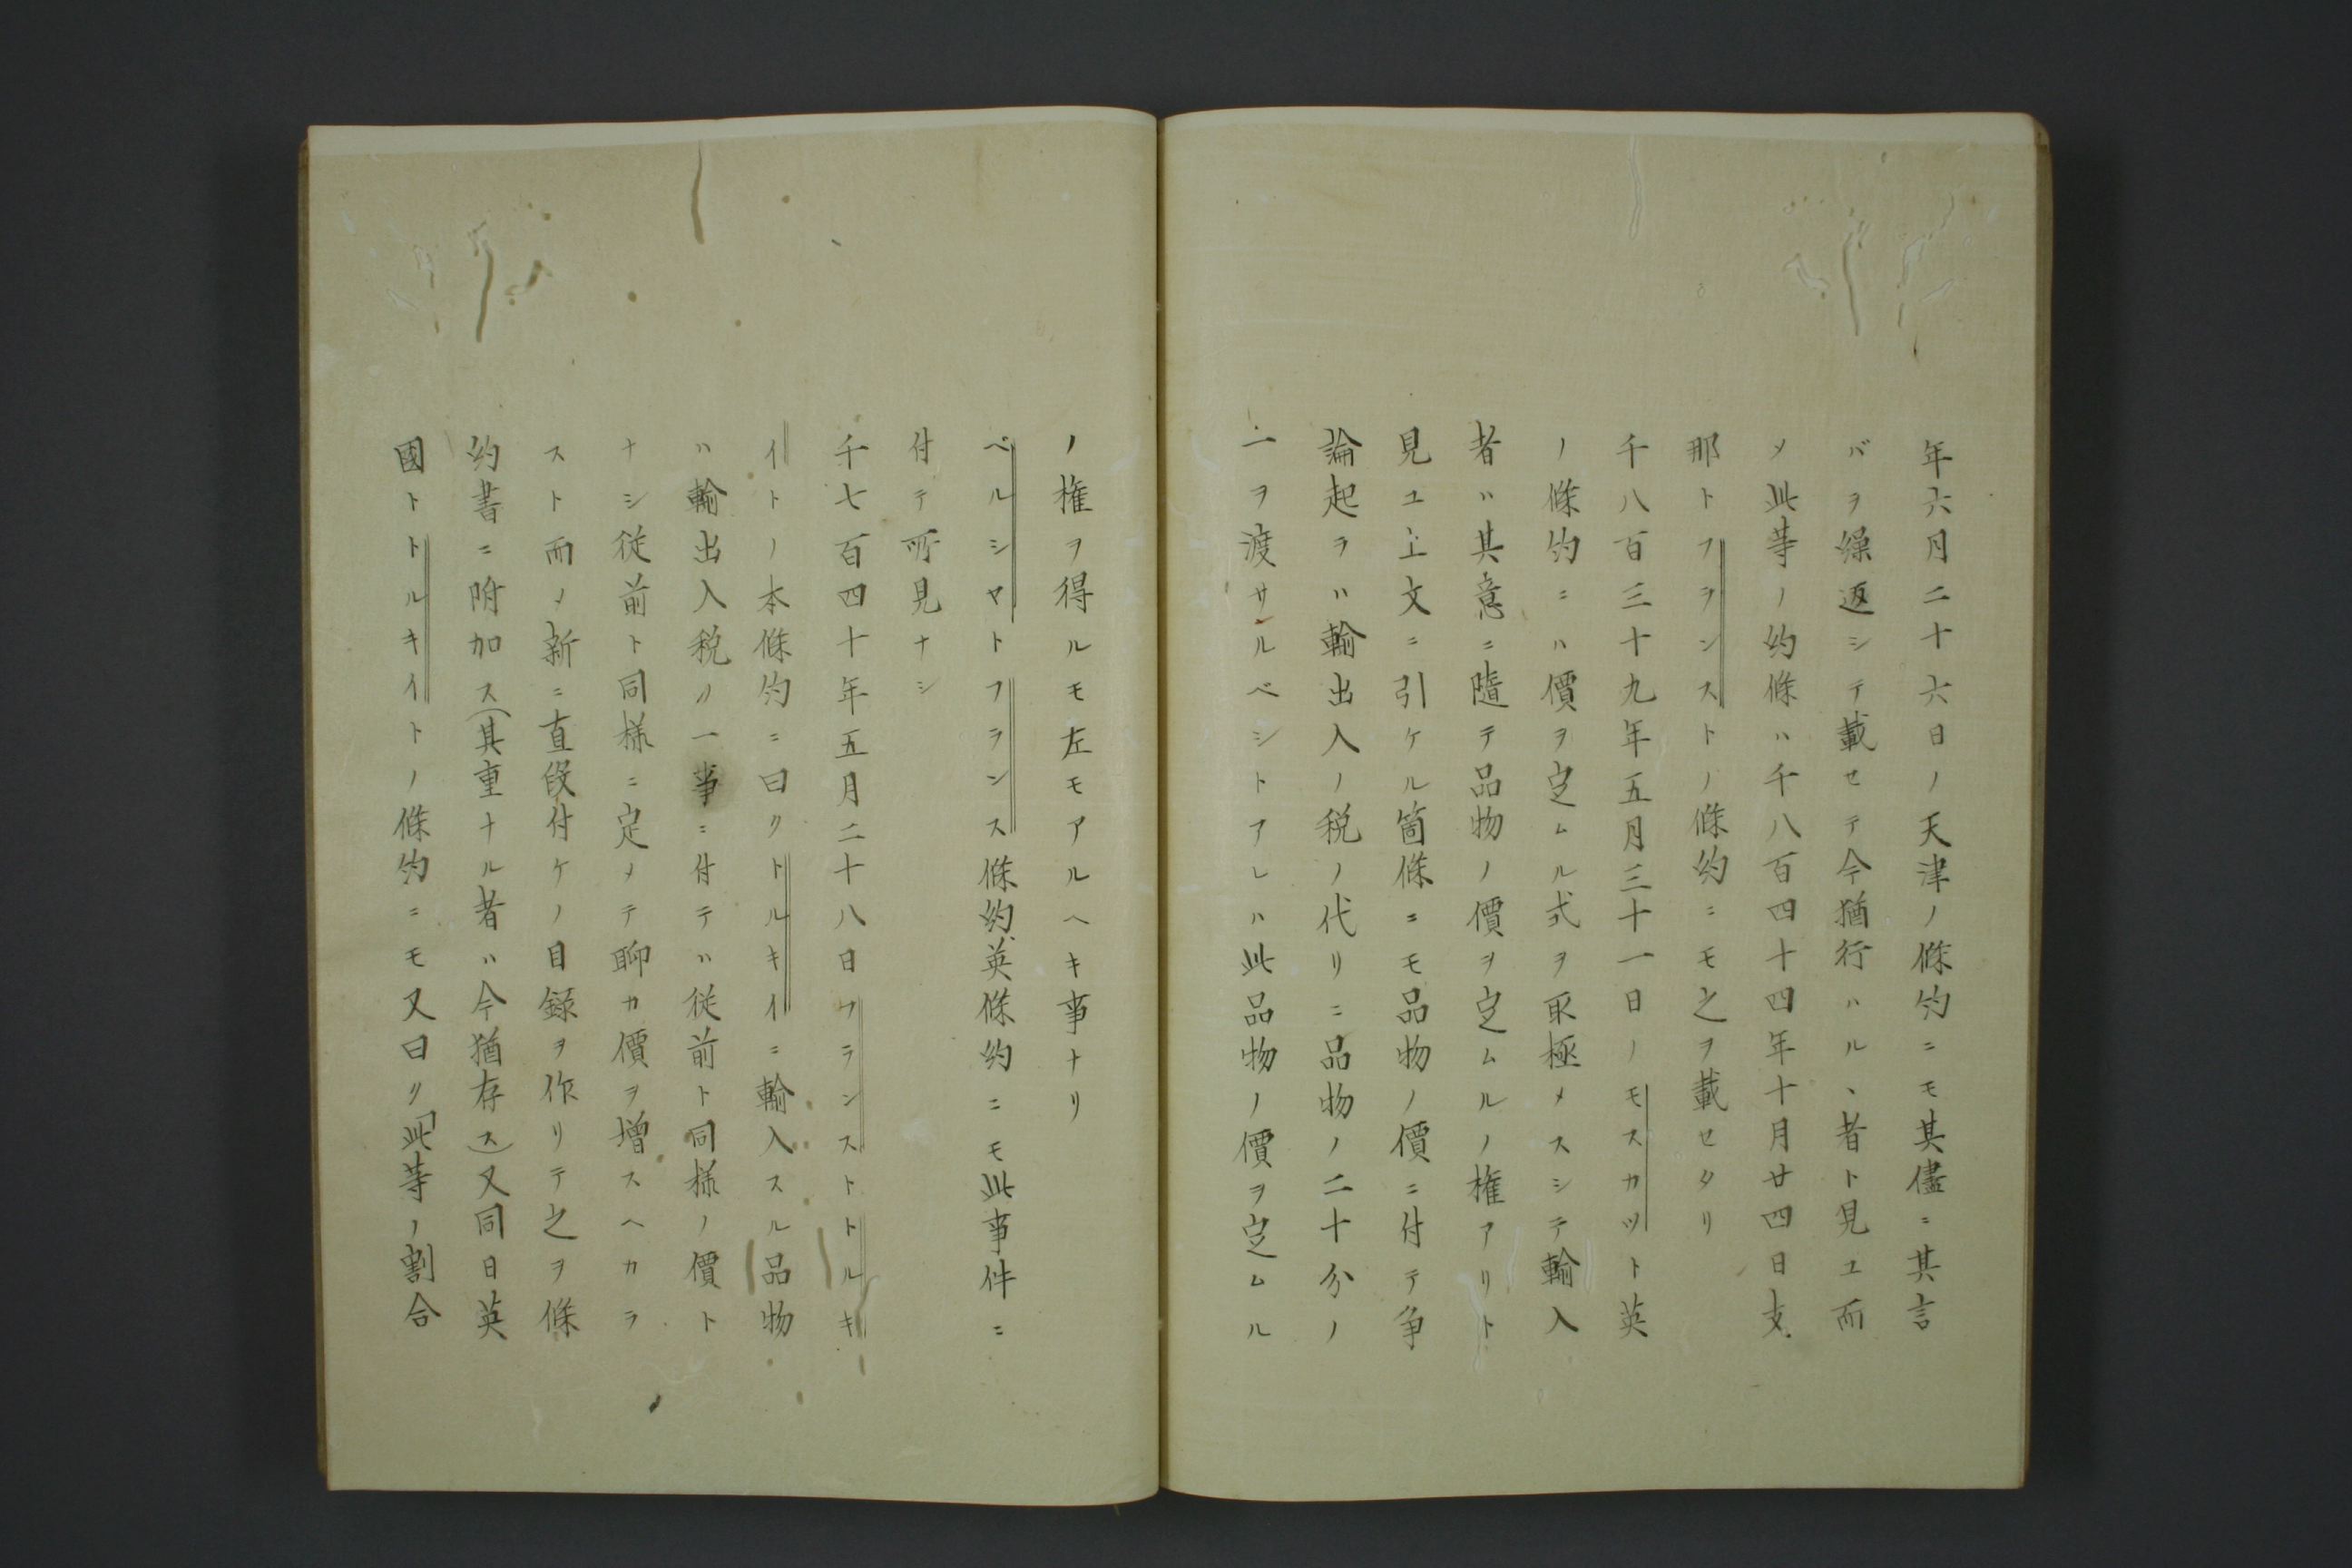 年六月二十六日ノ天津ノ條約ニモ其儘ニ其言
バヲ繰返シテ載セテ今猶行ハル、者ト見ユ而
メ此等ノ約條ハ千八百四十四年十月廿四日支
那トフランストノ條約ニモ之ヲ載セタリ
千八百三十九年五月三十一日ノモスカットト英
ノ條約ニハ價ヲ定ムル式ヲ取極メスシテ輸入
者ハ其意ニ隨テ品物ノ價ヲ定ムルノ権アリト
見ユ上文ニ引ケル箇條ニモ品物ノ價ニ付テ争
論起ラハ輸出入ノ税ノ代リニ品物ノ二十分ノ
一ヲ渡サルベシトアレハ此品物ノ價ヲ定ムル
ノ権ヲ得ルモ左モアルヘキ事ナリ
ペルシヤトフランス條約英條約ニモ此事件ニ
付テ所見ナシ
千七百四十年五月二十八日フランストトルキ
イトノ本條約ニ曰クトルキイニ輸入スル品物
ハ輸出入税ノ一事ニ付テハ従前ト同様ノ價ト
ナシ従前ト同様ニ定メテ聊カ價ヲ増スヘカラ
スト而メ新ニ直段付ケノ目録ヲ作リテ之ヲ條
約書ニ附加ス(其重ナル者ハ今猶存ス)又同日英
國トトルキイトノ條約ニモ又曰ク「此等ノ割合